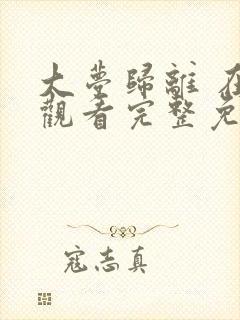 大夢歸離 在
觀看完整免
寇志真